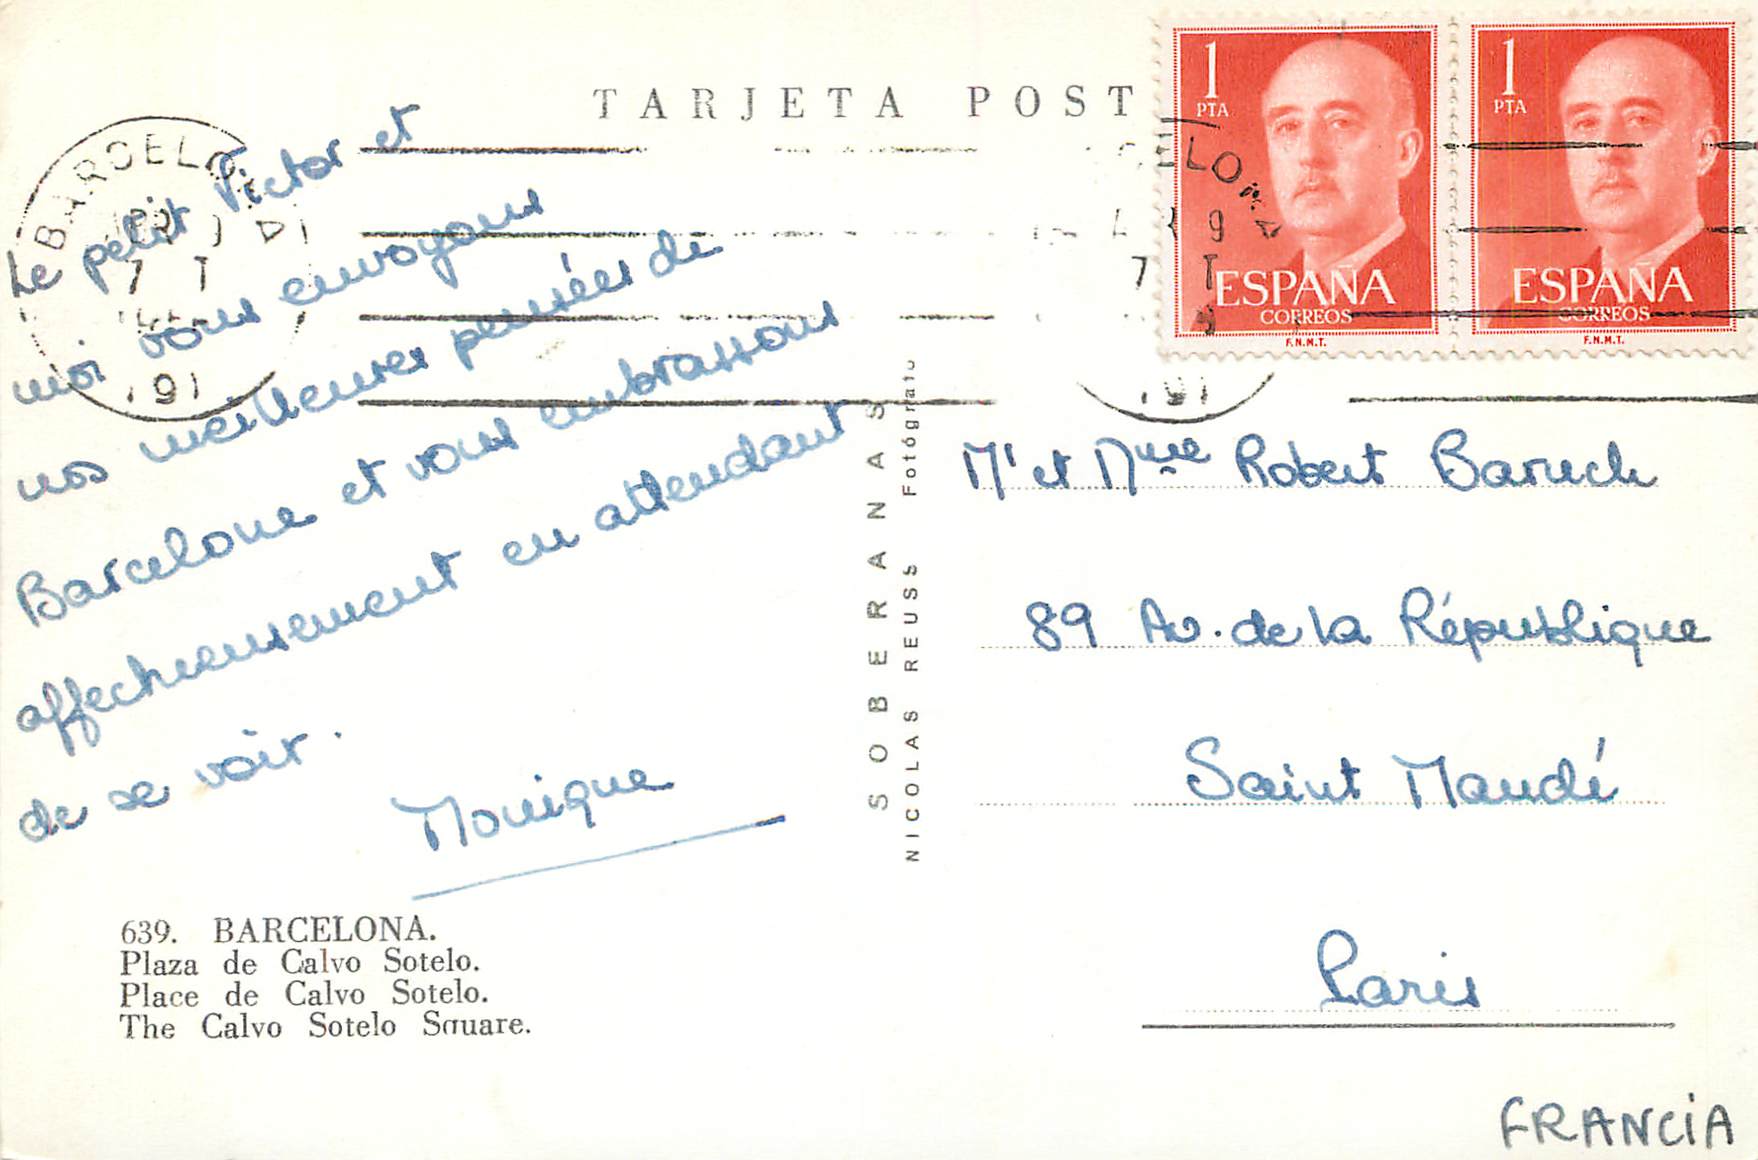 TARJETA POST
1
PTA
ESPAÑA
CORREOS
F.N.M.T.
1
PTA
ESPAÑA
CORREOS
F.N.M.T.
BARCELONA
Le petit Victor et
moi vous envoyons
nos meilleures pensées de
Barcelone et vous embrassons
affectueusement en attendant
de se voir.
Monique
639. BARCELONA.
Plaza de Calvo Sotelo.
Place de Calvo Sotelo.
The Calvo Sotelo Square.
SOBERANAS
NICOLAS REUSS Fotógrafo
Mr et Mme Robert Baruch
89 Av. de la République
Saint Mandé
Paris
FRANCIA